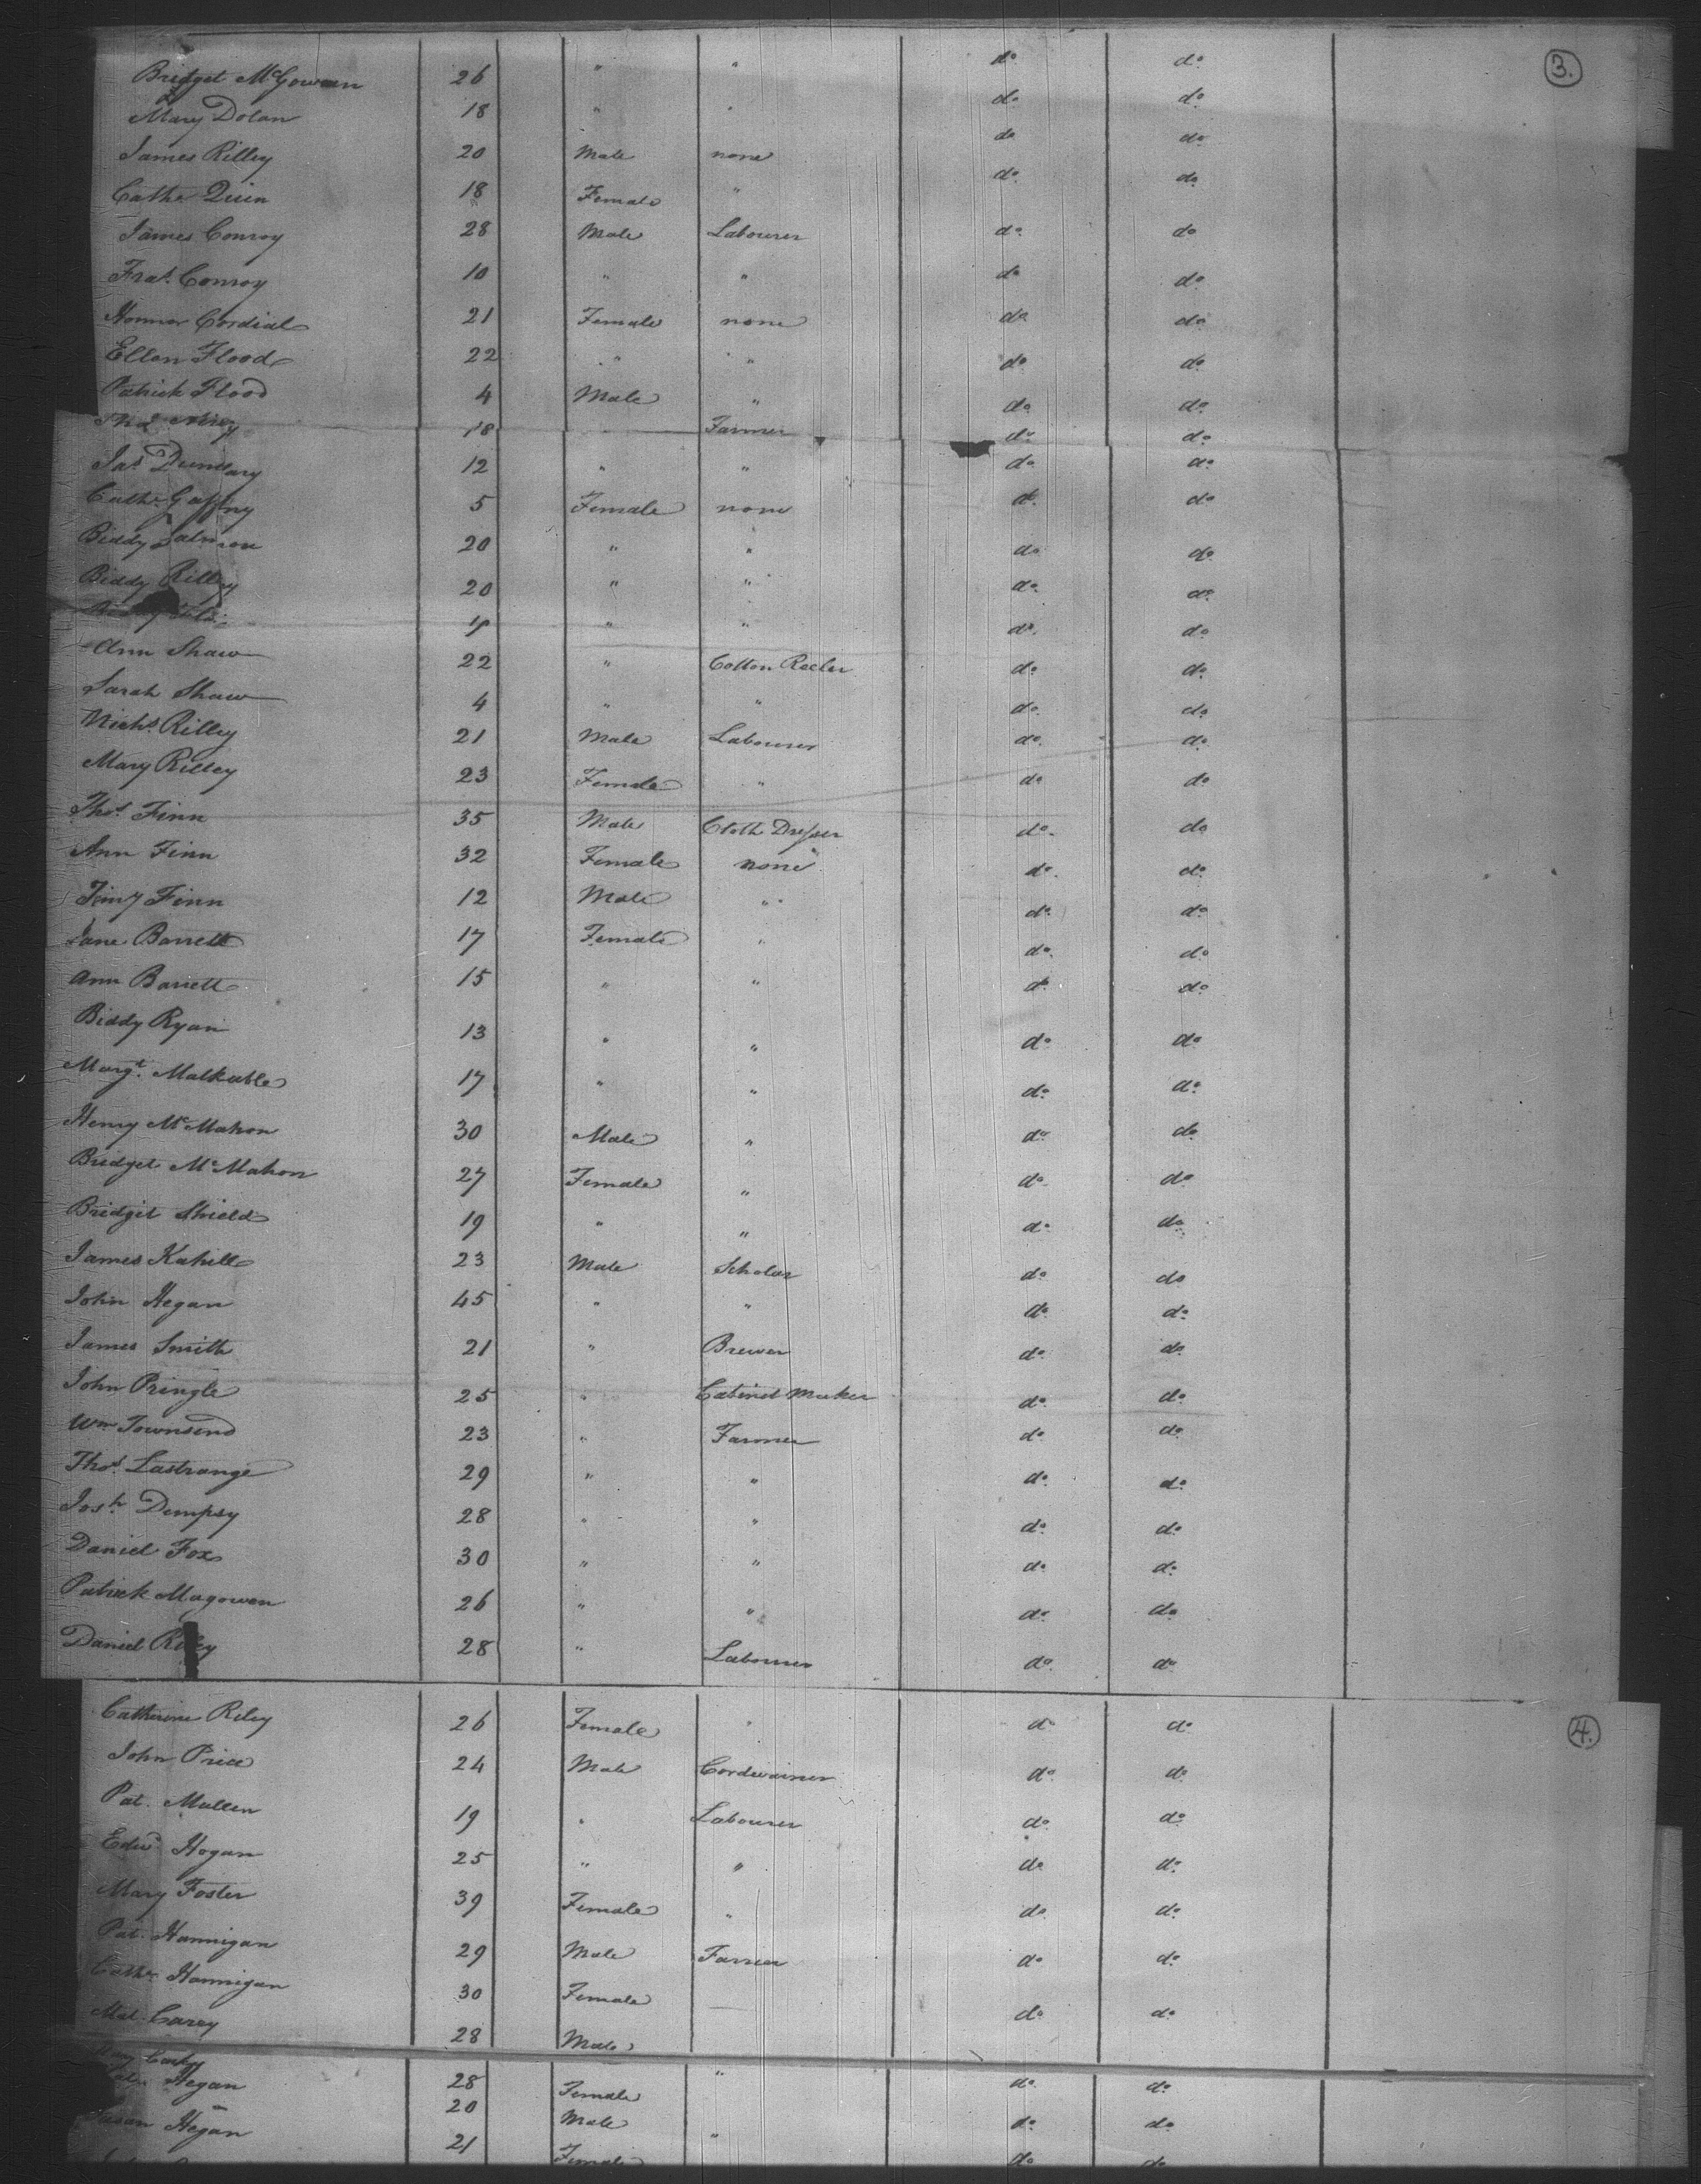 3.
Bridget McGowan 26 " " do do
Mary Dolan 18 " " do do
James Rilley 20 Male none do do
Cathe Quin 18 Female " do do
James Conroy 28 Male Labourer do do
Fras. Conroy 10 " " do do
Honnor Cordial 21 Female none do do
Ellen Flood 22 " " do do
Patrick Flood 4 Male " do do
18 Farmer do do
Jas 12 " " do do
Cathe Gaffny 5 Female none do do
Biddy Salmon 20 " " do do
Biddy Rilley 20 " " do do
" " do do
Ann Shaw 22 " Cotton Reeler do do
Sarah Shaw 4 " " do do
Nichs. Rilley 21 Male Labourer do do
Mary Rilley 23 Female " do do
Thos. Finn 35 Male Cloth Dresser do do
Ann Finn 32 Female none do do
Finn 12 Male " do do
Jane Barrett 17 Female " do do
Ann Barrett 15 " " do do
Biddy Ryan 13 " " do do
Margt. Malkable 17 " " do do
Henry McMahon 30 Male " do do
Bridget McMahon 27 Female " do do
Bridget Shield 19 " " do do
James Kahill 23 Male Scholar do do
John Hegan 45 " " do do
James Smith 21 " Brewer do do
John Pringle 25 " Cabinet Maker do do
Wm Townsend 23 " Farmer do do
Thos. Lastrange 29 " " do do
Josh. Dempsy 28 " " do do
Daniel Fox 30 " " do do
Patrick Magowen 26 " " do do
Daniel Riley 28 " Labourer do do
4.
Catherine Riley 26 Female " do do
John Price 24 Male Cordwainer do do
Pat. Mullen 19 " Labourer do do
Edwd. Hogan 25 " " do do
Mary Foster 39 Female " do do
Pat. Hannigan 29 Male Farmer do do
Cathe Hannigan 30 Female do do
Mat. Carey 28 Male
28 Female " do do
Hegan 20 Male do do
Susan Hegan 21 Female " do do